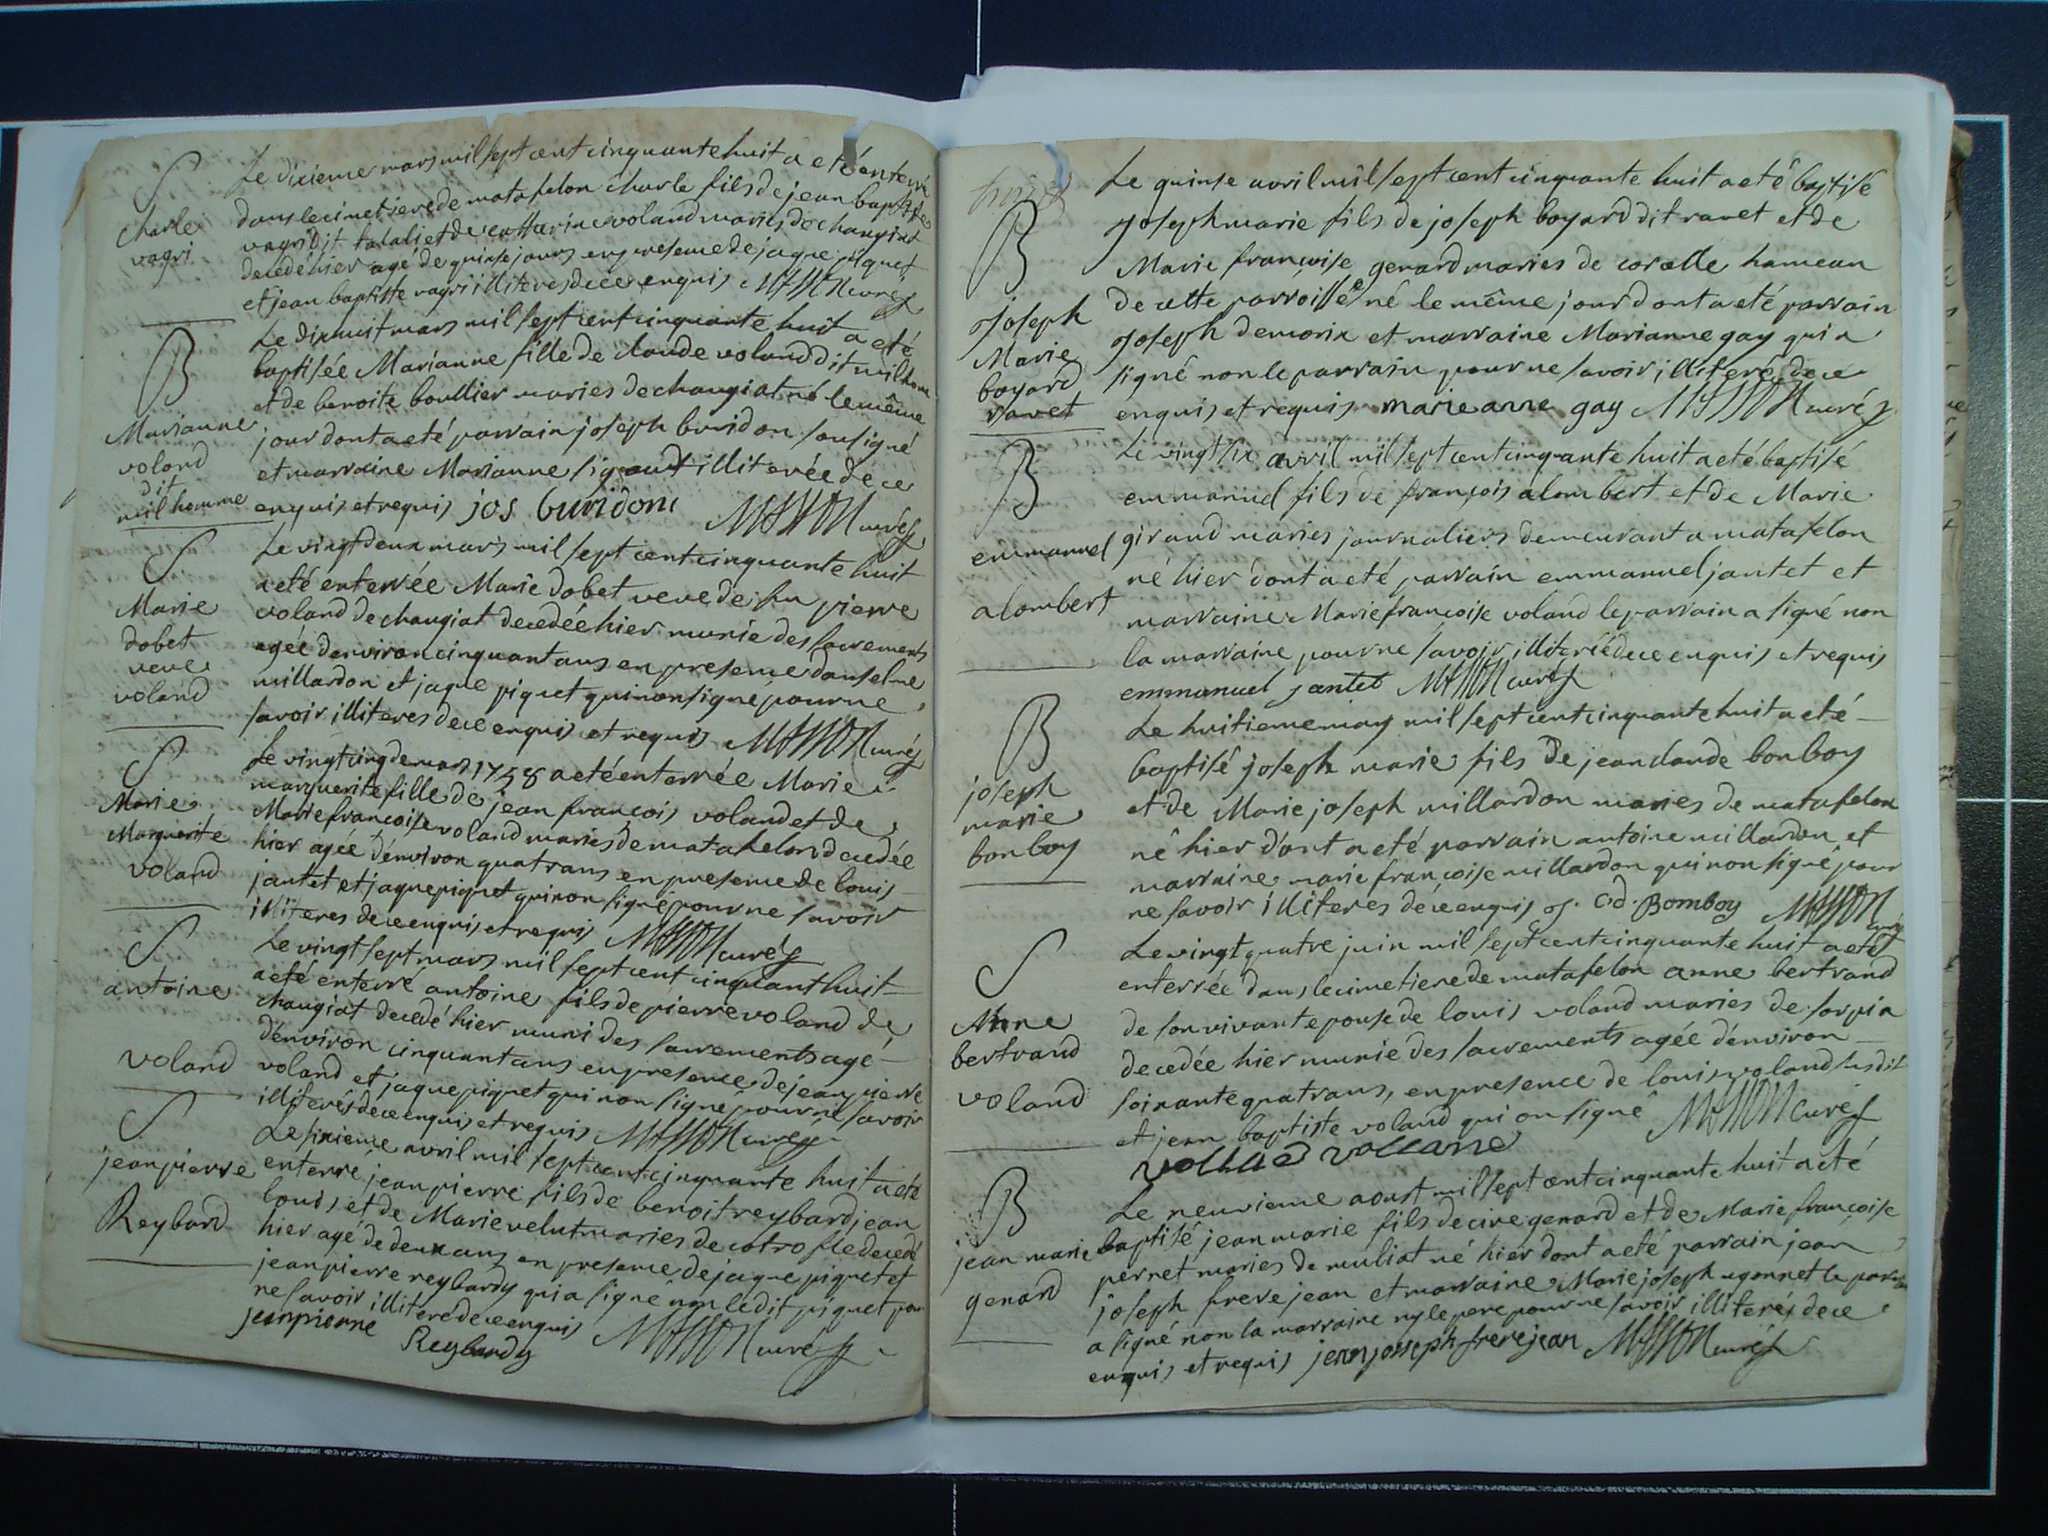 S
Charle
vagri
Le dixieme mars mil sept cent cinquante huit a eté enterré
dans le cimetiere de matafelon charle fils de jean baptiste
vagri dit et de catherine voland mariés de changiat
decedé hier agé de quinse jours en presence de jaque piquet
et jean baptiste vagri illiteres de ce enquis MASSON curé
B
Marianne
voland
dit
mil homme
Le dixhuit mars mil sept cent cinquante huit a eté
baptisée Marianne fille de claude voland dit milhom
et de benoite boullier maries de changiat né le même
jour dont a eté parrain joseph buridon sousigné
et marraine Marianne sigaudt illiterée de ce
enquis et requis jos buridon MASSON curé
S
Marie
dobet
veve
voland
Le vingt deux mars mil sept cent cinquante huit
a eté enterrée Marie dobet veve de feu pierre
voland de changiat decedée hier munie des sacrements
agée denviron cinquant ans en presence danselme
millardon et jaque piquet qui non signe pour ne
savoir illiteres de ce enquis et requis MASSON curé
S
Marie
Marguerite
voland
Le vingt cinq de mars 1758 a eté enterrée Marie
marguerite fille de jean françois voland et de
Marie françoise voland mariés de matafelon decedée
hier agée denviron quatr ans en presence de louis
jantet et jaque piquet qui non signé pour ne savoir
illiteres de ce enquis et requis MASSON curé
S
antoine
voland
Le vingt sept mars mil sept cent cinquant huit
a eté enterré antoine fils de pierre voland de
changiat decedé hier muni des sacrements agé
denviron cinquant ans en presence de jean pierre
voland et jaque piquet qui non signé pour ne savoir
illiterés de ce enquis et requis MASSON curé
S
jean pierre
Reybard
Le sixieme avril mil sept cent cinquante huit a eté
enterré jean pierre fils de benoit reybard jean
louis et de Marie velut maries de decedé
hier agé de deux ans en presence de jaque piquet et
jean pierre reybardy qui a signé non ledit piquet pour
ne savoir illiteré de ce enquis MASSON curé
jeanpierre
Reybardy
B
Joseph
Marie
boyard
ravet
Le quinse avril mil sept cent cinquante huit a eté baptisé
Joseph marie fils de joseph boyard dit ravet et de
Marie françoise genard maries de corcelle hameau
de cette parroisse né le même jour dont a eté parrain
Joseph demorix et marraine Marianne gay qui a
signé non le parrain pour ne savoir illiteré de ce
enquis et requis marieanne gay MASSON curé
B
emmanuel
alombert
Le vingt six avril mil sept cent cinquante huit a eté baptisé
emmanuel fils de françois alombert et de Marie
giraud maries journaliers demeurant a matafelon
né hier dont a eté parrain emmanuel jantet et
marraine Marie françoise voland le parrain a signé non
la marraine pour ne savoir illiteriée de ce enquis et requis
emmanuel jantet MASSON curé
B
joseph
marie
bonboy
Le huitieme may mil sept cent cinquante huit a eté
baptisé joseph marie fils de jean claude bonboy
et de Marie joseph millardon maries de matafelon
né hier dont a eté parrain antoine millardon et
marraine marie françoise millardon qui non signé pour
ne savoir illiteres de ce enquis J. Cd. Bomboy MASSON curé
S
Anne
bertrand
voland
Le vingt quatre juin mil sept cent cinquante huit a eté
enterrée dans le cimetiere de matafelon anne bertrand
de son vivant epouse de louis voland maries de sorpia
decedée hier munie des sacrements agée denviron
soixante quatr ans, en presence de louis voland susdit
et jean baptiste voland qui on signé MASSON curé
volland volland
B
jean marie
genard
Le neuvieme aoust mil sept cent cinquante huit a eté
baptisé jean marie fils de cire genard et de Marie françoise
pernet maries de muliat né hier dont a eté parrain jean
joseph frere jean et marraine Marie joseph ugonnet le parrain
a signé non la marraine ny le pere pour ne savoir illiterés de ce
enquis et requis jean joseph frerejean MASSON curé